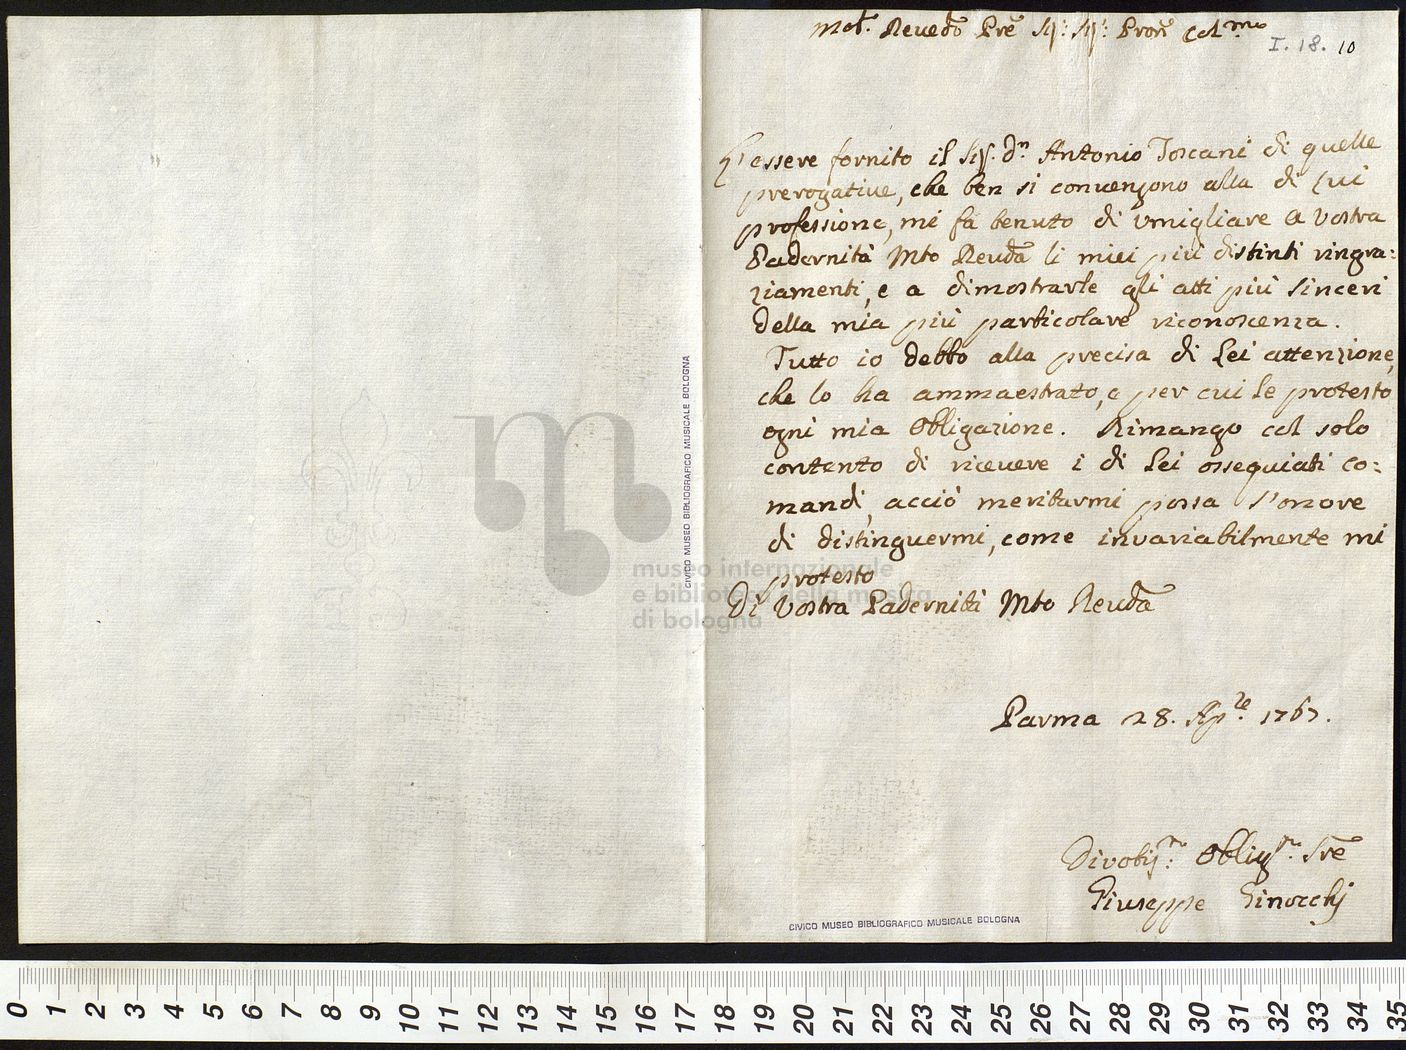 Mol.t Reued.o Pre Sig: Sig: Pron Col.mo
I. 18. 10
L'essere fornito il Sig. Dn Antonio Toscani di quelle
prerogatiue, che ben si conuengono alla di lui
professione, mi fà tenuto di Vmigliare a Vostra
Padernità Mto Reuda li miei più distinti ringra:
ziamenti, e a dimostrarle gli atti più sinceri
della mia più particolare riconoscenza.
Tutto io debbo alla precisa di Lei attenzione,
che lo ha ammaestrato, e per cui le protesto
ogni mia Obligazione. Rimango col solo
contento di riceuere i di Lei ossequiati co:
mandi, acciò meritarmi possa l'onore
di distinguermi, come inuariabilmente mi
protesto
Di Vostra Padernità Mto Reuda
Parma 28. Ap.le 1767.
Diuotis.mo Obligs.mo Sre
Giuseppe Ginocchj
CIVICO MUSEO BIBLIOGRAFICO MUSICALE BOLOGNA
CIVICO MUSEO BIBLIOGRAFICO MUSICALE BOLOGNA
museo internazionale
e biblioteca della musica
di bologna
0 1 2 3 4 5 6 7 8 9 10 11 12 13 14 15 16 17 18 19 20 21 22 23 24 25 26 27 28 29 30 31 32 33 34 35